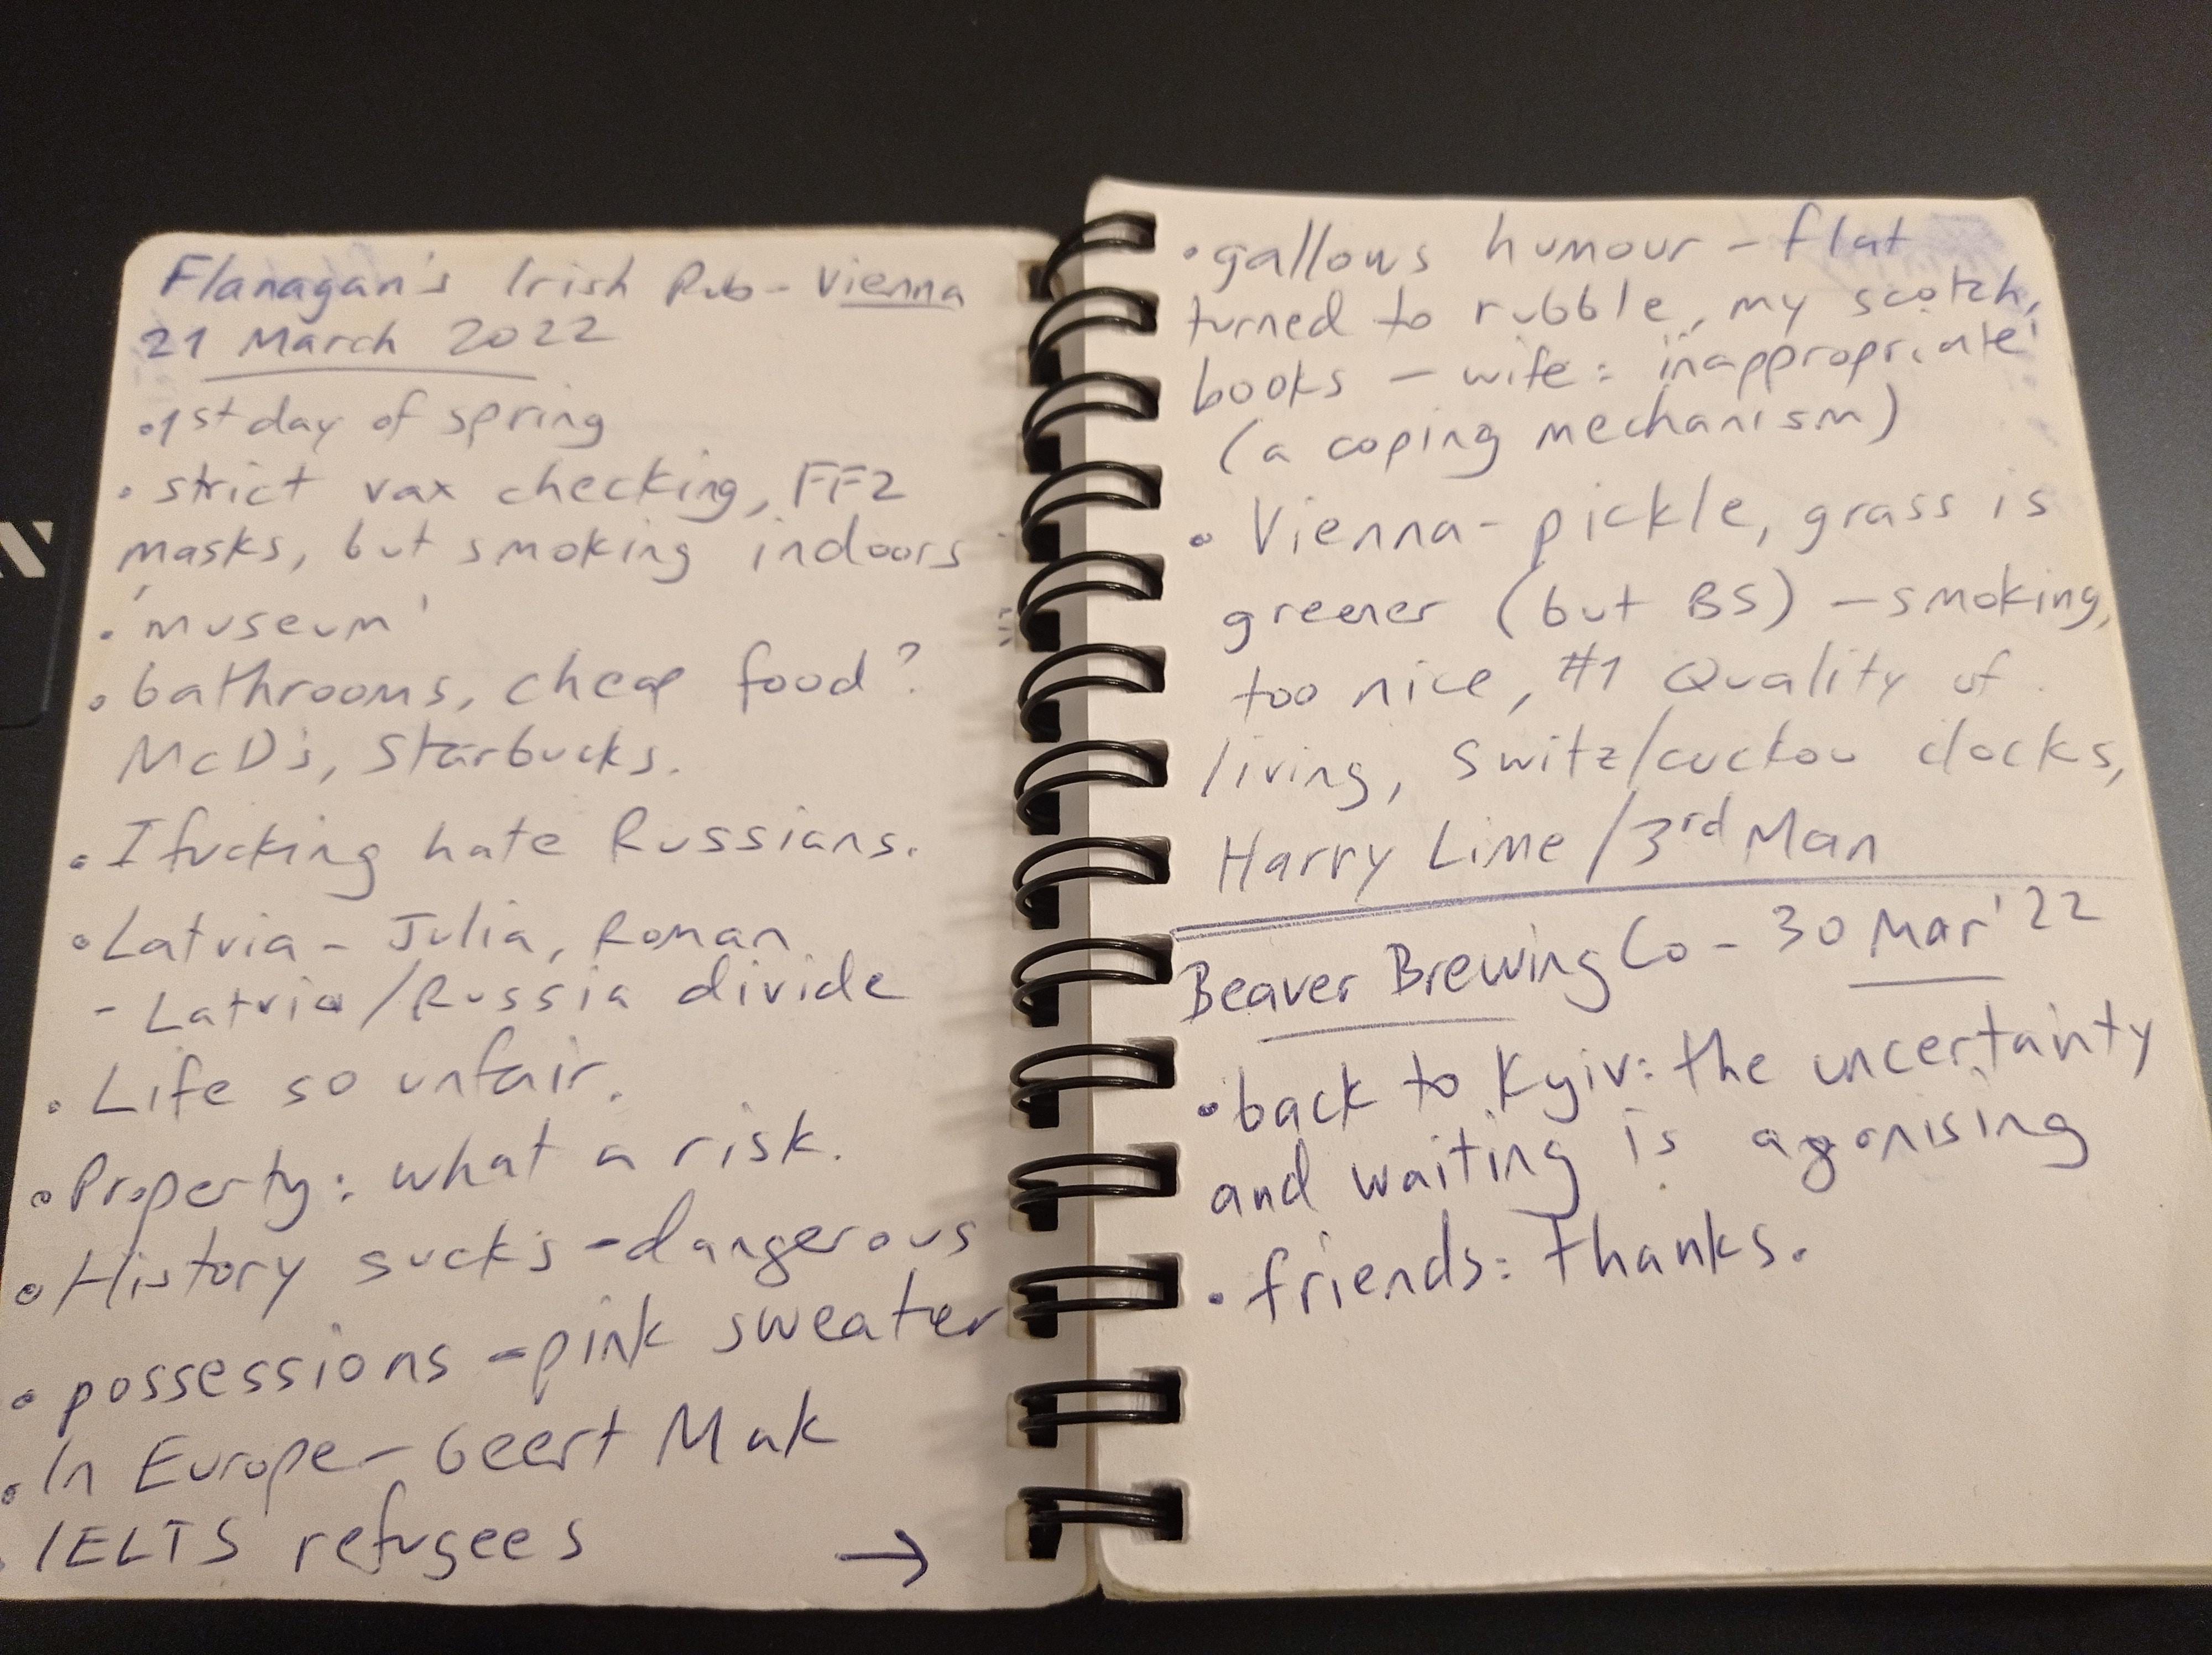 Flanagan's Irish Pub - Vienna
21 March 2022
• 1st day of spring
• strict vax checking, FF2
masks, but smoking indoors
• 'museum'
• bathrooms, cheap food?
McD's, Starbucks.
• I fucking hate Russians.
• Latvia - Julia, Roman
- Latvia/Russia divide
• Life so unfair.
• Property: what a risk.
• History sucks - dangerous
• possessions - pink sweater
• In Europe - Geert Mak
• IELTS refugees →
• gallows humour - flat
turned to rubble, my scotch,
books - wife: 'inappropriate'
(a coping mechanism)
• Vienna - pickle, grass is
greener (but BS) - smoking,
too nice, #1 Quality of
living, Switz/cuckoo clocks,
Harry Lime / 3rd Man
Beaver Brewing Co - 30 Mar '22
• back to Kyiv: the uncertainty
and waiting is agonising
• friends: thanks.